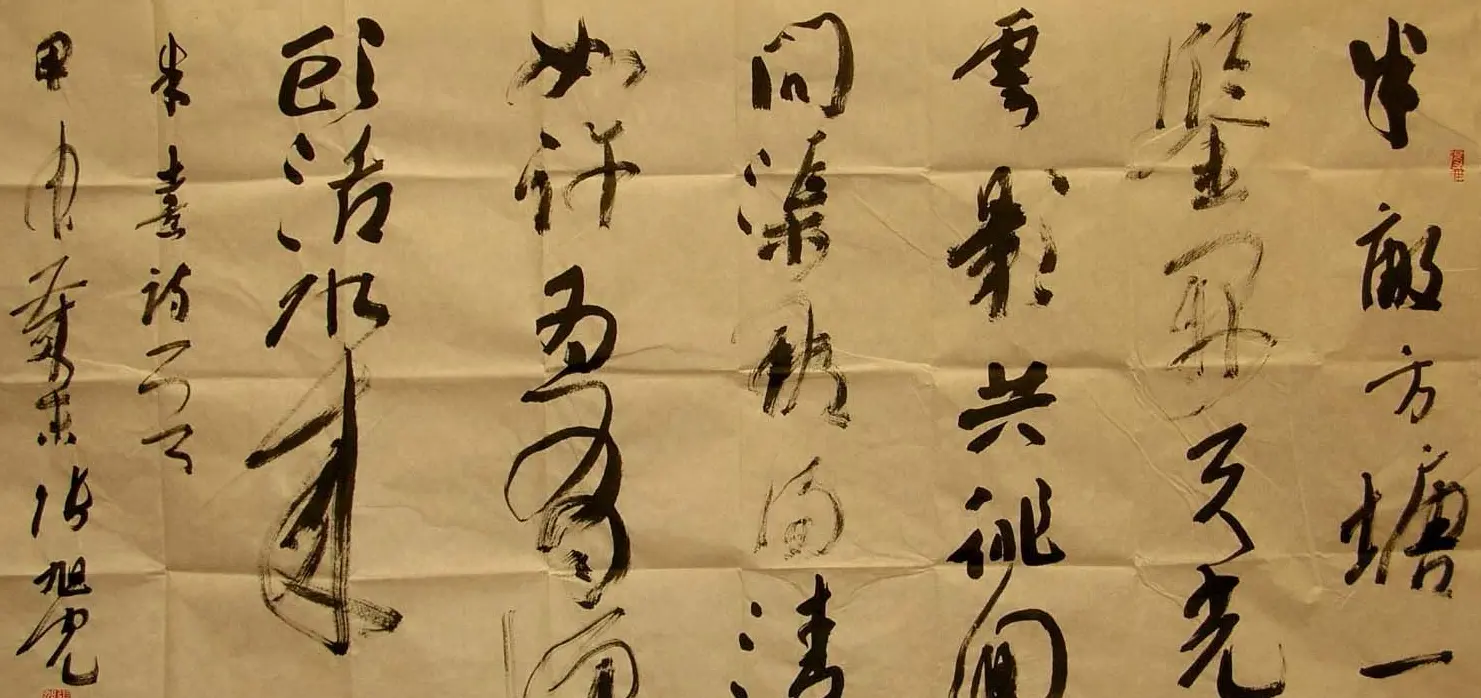 半畝方塘一
鑒開天光
雲影共徘徊
問渠那得清
如許為有源
頭活水來
朱熹詩
甲申歲末張旭光